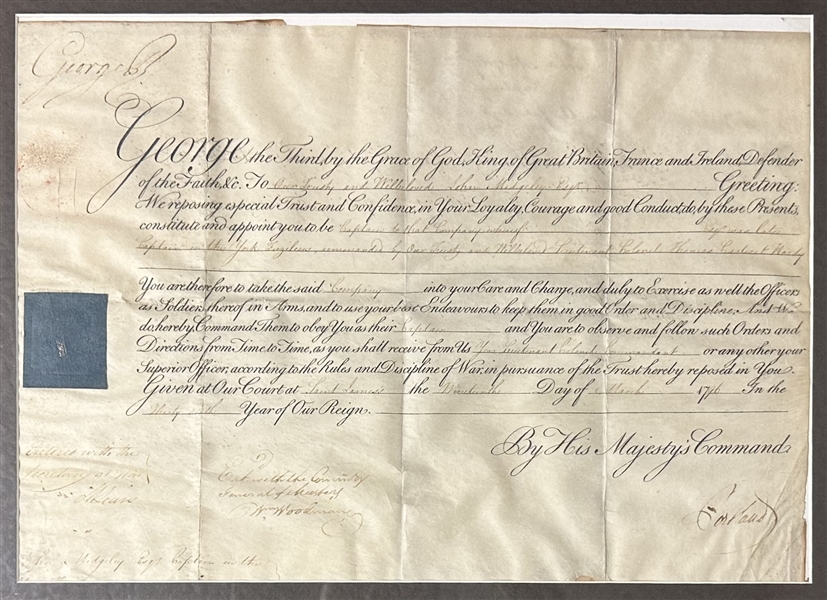 George R
George the Third, by the Grace of God, King, of Great Britain, France and Ireland, Defender
of the Faith, &c. To Our Trusty and Wellbeloved John Midgeley Esqr. Greeting:
We reposing especial Trust and Confidence, in Your Loyalty, Courage and good Conduct, do, by these Presents,
constitute and appoint you to be Captain of that Company whereof
Captain in the York Fuzileers, commanded by Our Trusty and Wellbeloved Lieutenant Colonel Thomas Hardy
You are therefore to take the said Company into your Care and Charge, and duly to Exercise as well the Officers
as Soldiers, thereof in Arms, and to use your best Endeavours to keep them in good Order and Discipline; And We
do hereby, Command Them to obey You as their Captain and You are to observe and follow such Orders and
Directions from Time to Time, as you shall receive from Us Your Lieutenant Colonel Commandant or any other your
Superior Officer, according to the Rules and Discipline of War, in pursuance of the Trust hereby reposed in You
Given at Our Court at Saint James's the Day of March 1796 In the
Thirty Year of Our Reign.
By His Majesty's Command
Portland
Entered with the
Secretary at War
Ent. with the Commissry
General of Musters
Wm Woodman
Midgeley Esqr Captain in the